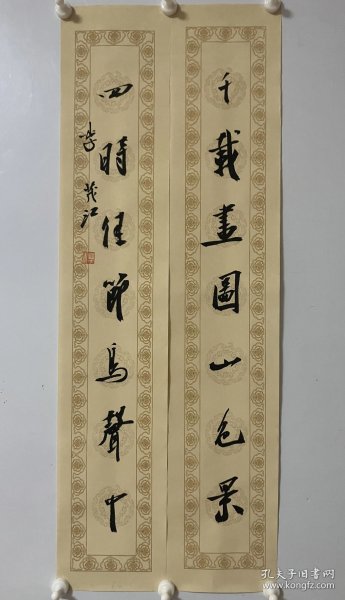 千載畫圖山色景
四時佳節鳥聲中
李茂江
孔夫子旧书网
kongfz.com